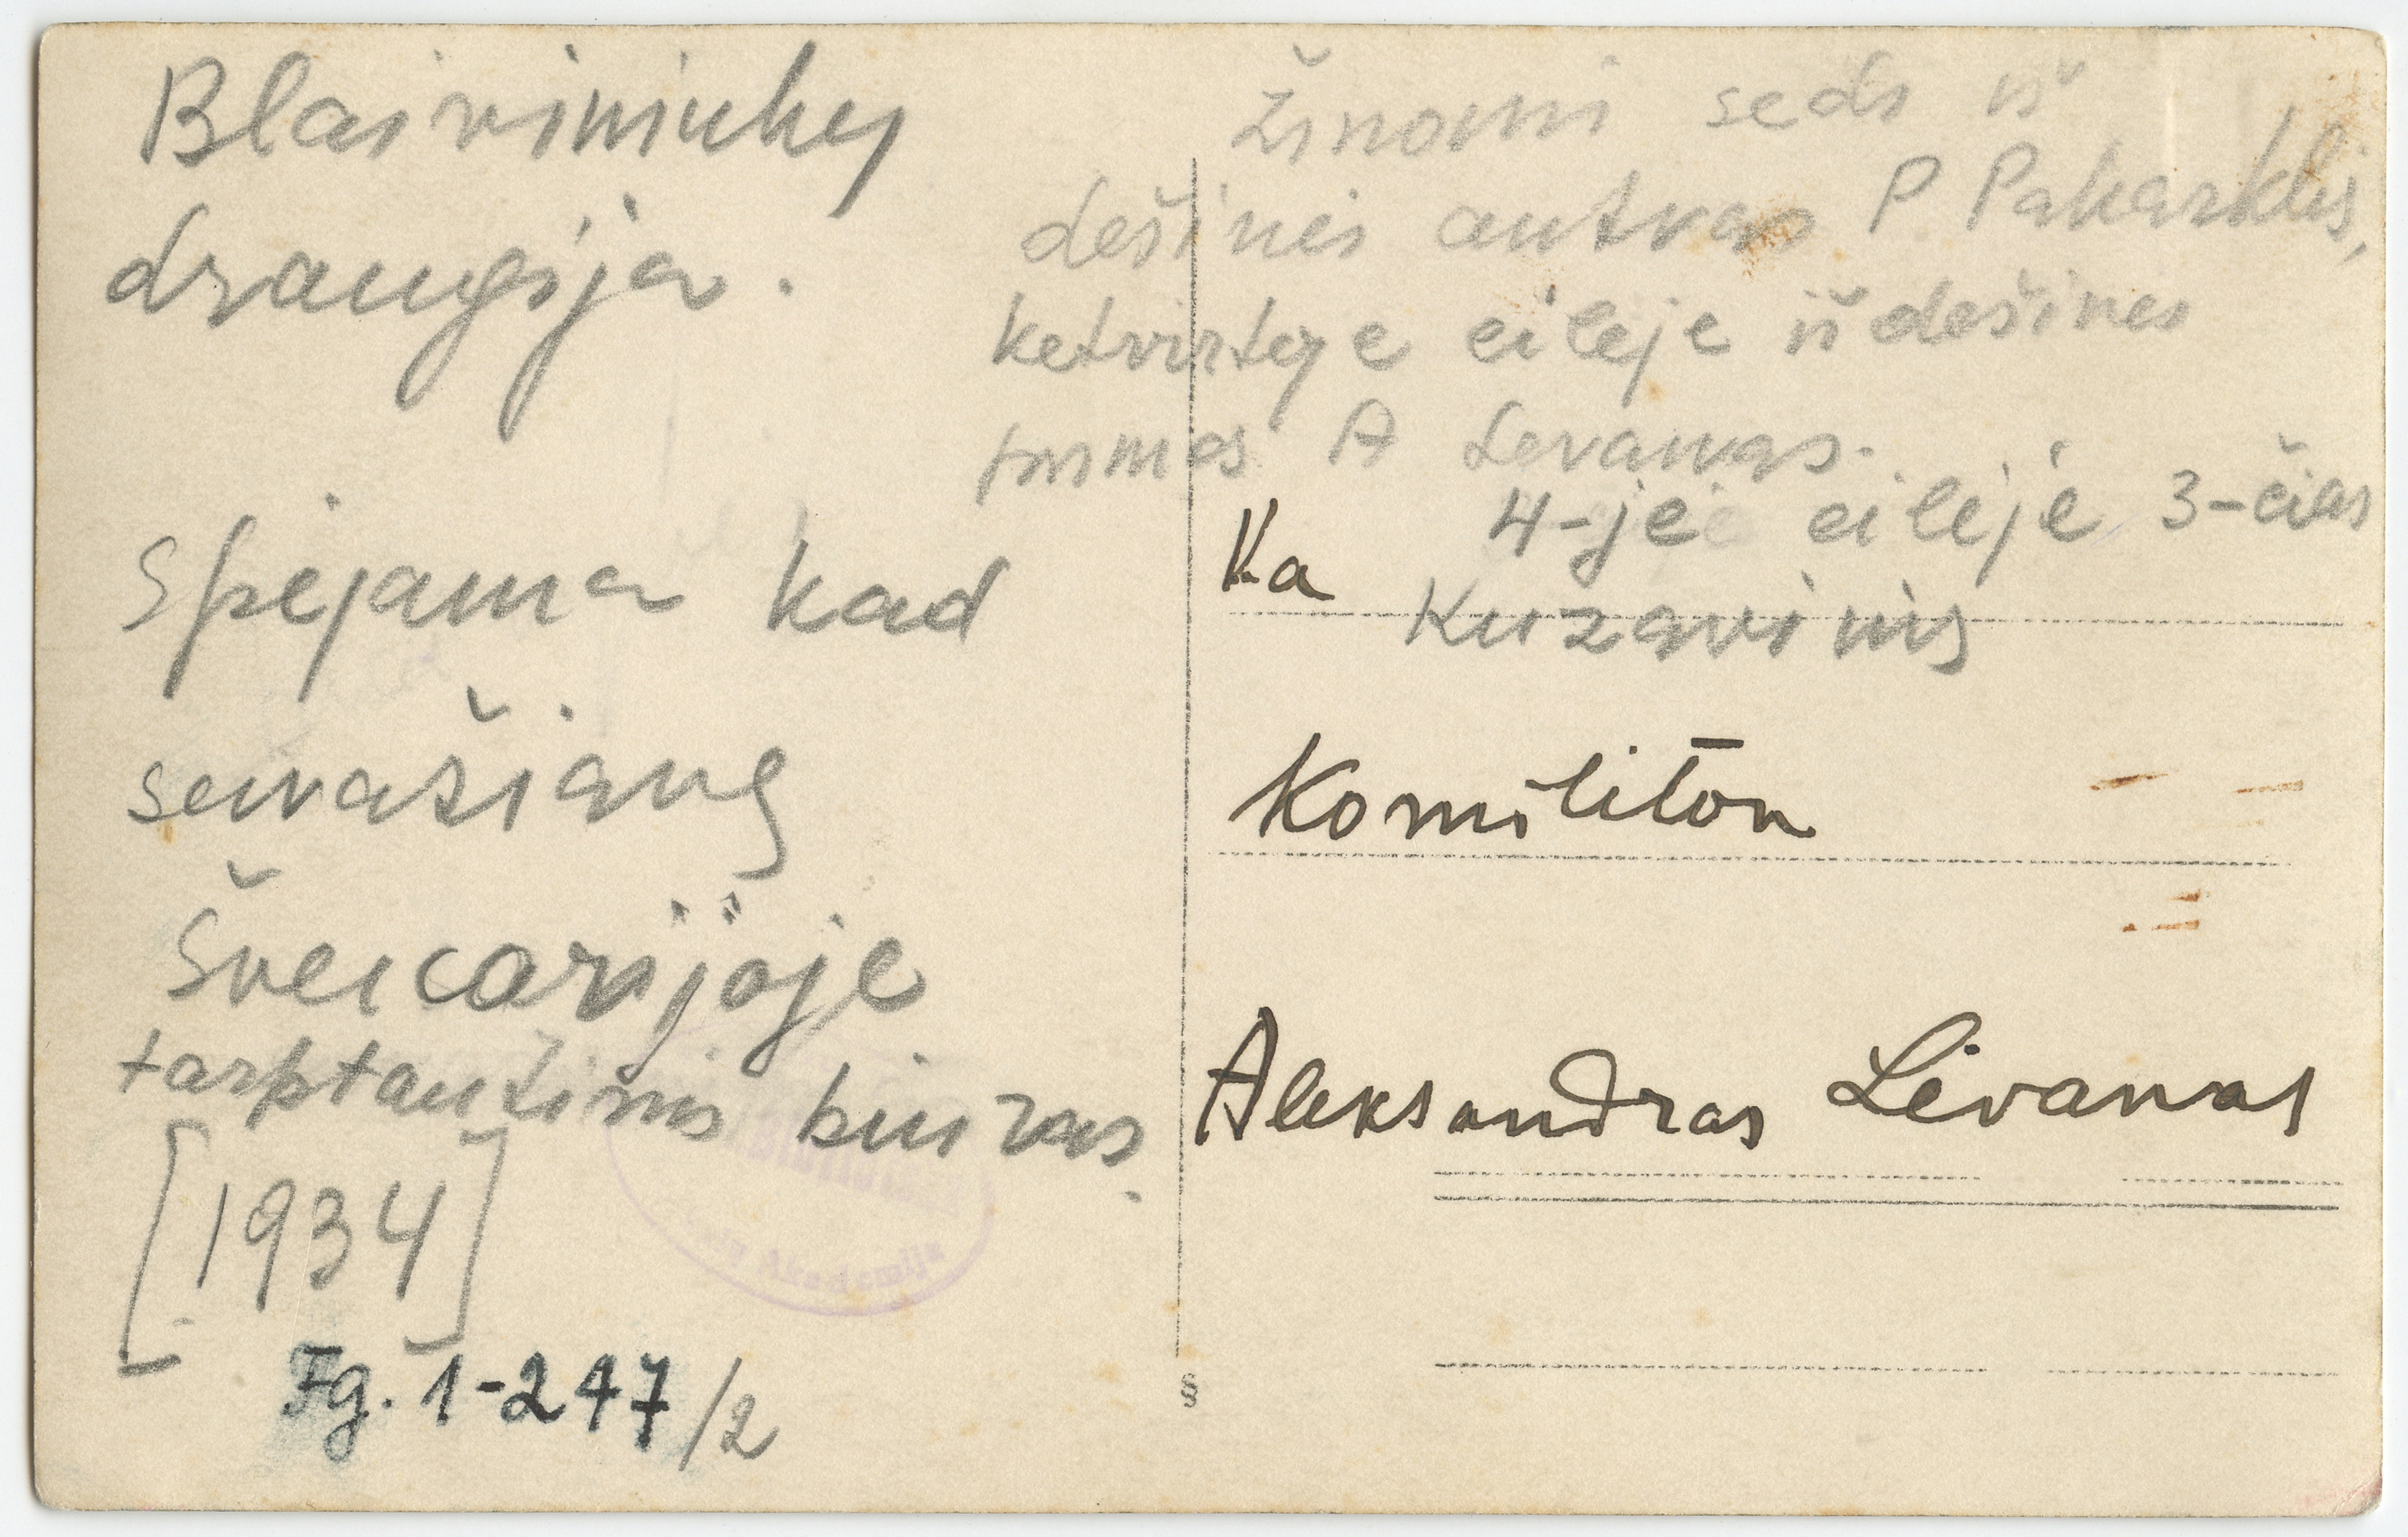 Blaivininkų
draugija.
Spėjama kad
suvažiavę
Šveicarijoje
tarptautinis biuras.
[1934]
Fg. 1-247/2
Akademija
Žinomi sėdi iš
dešinės antras P. Pakarklis,
ketvirtoje eilėje iš dešinės
pirmas A Levanas.
4-je eilėje 3-čias
Kuzavinis
Ka
Komiliton
Aleksandras Levanas
§